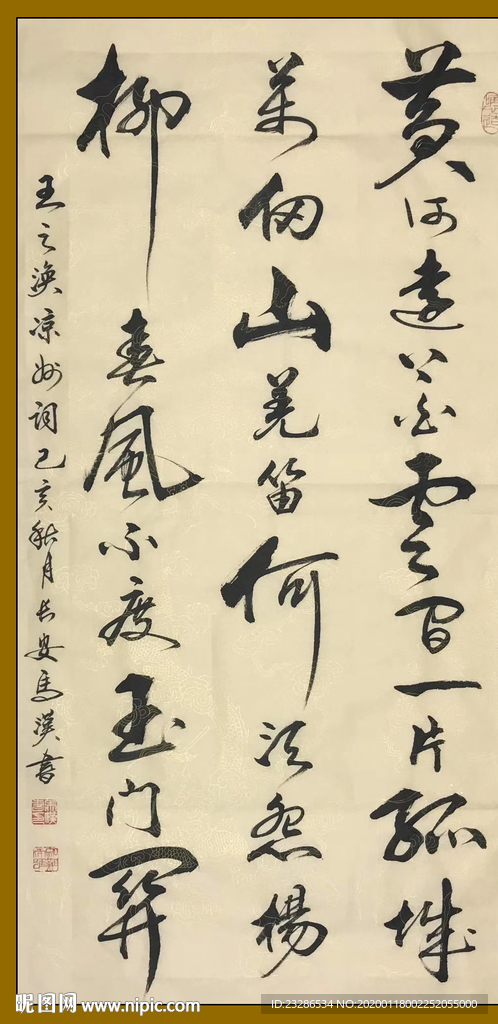 黄河远上白云间一片孤城
万仞山羌笛何须怨杨
柳春风不度玉门关
王之涣凉州词己亥秋月长安马汉书
昵图网 www.nipic.com
ID:23286534 NO:20200118002252055000